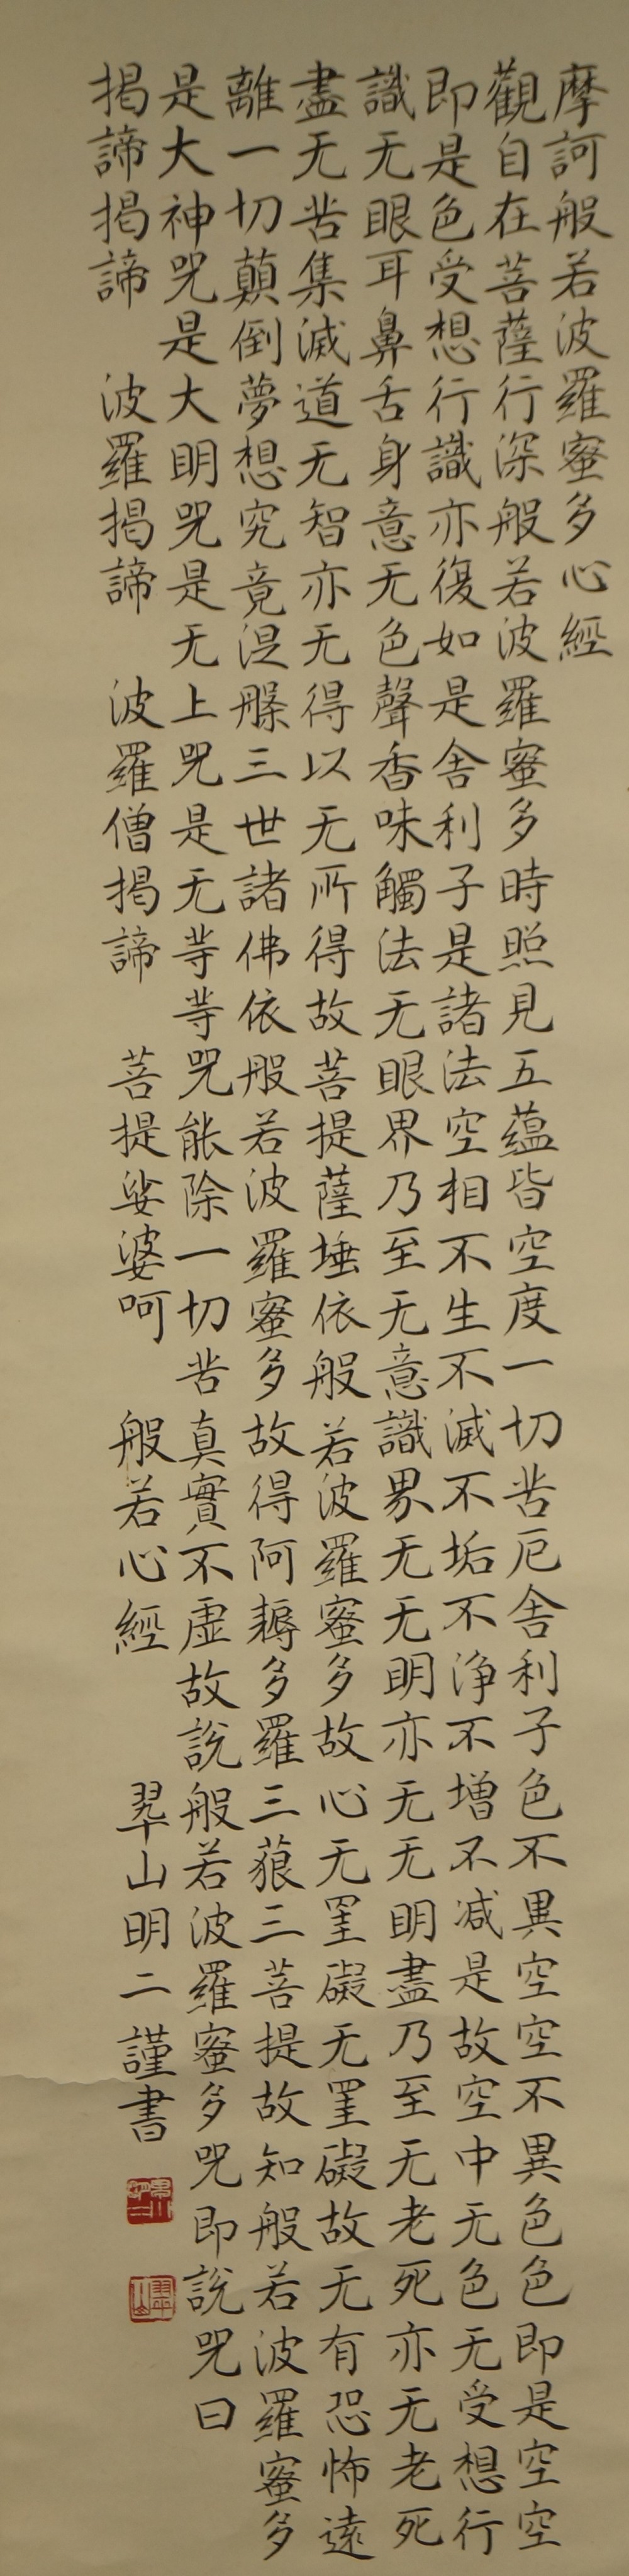 摩訶般若波羅蜜多心經
觀自在菩薩行深般若波羅蜜多時照見五蘊皆空度一切苦厄舍利子色不異空空不異色色即是空空
即是色受想行識亦復如是舍利子是諸法空相不生不滅不垢不浄不增不减是故空中无色无受想行
識无眼耳鼻舌身意无色聲香味觸法无眼界乃至无意識界无无明亦无无明盡乃至无老死亦无老死
盡无苦集滅道无智亦无得以无所得故菩提薩埵依般若波羅蜜多故心无罣礙无罣礙故无有恐怖遠
離一切顛倒夢想究竟涅槃三世諸佛依般若波羅蜜多故得阿耨多羅三藐三菩提故知般若波羅蜜多
是大神咒是大明咒是无上咒是无等等咒能除一切苦真實不虛故說般若波羅蜜多咒即說咒曰
揭諦揭諦　波羅揭諦　波羅僧揭諦　菩提娑婆呵　般若心經　翠山明二謹書